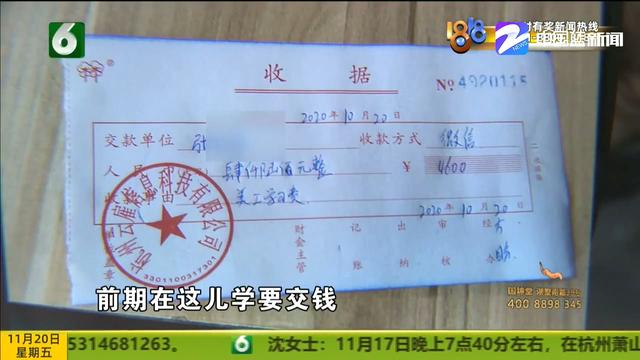 6
1818
有奖新闻热线
新闻
收 据
No 4920115
2020年10月20日
交款单位
收款方式 微信
人民 肆仟陆佰元整 ¥ 4600
由 美工学习费
2020年10月20日
财会主管
记账
出纳
审核
经
杭州云雇信息科技有限公司
3301100317301
前期在这儿学要交钱
400 8898 345
11月20日
星期五
5314681263。
6
沈女士：11月17日晚上7点40分左右，在杭州萧山